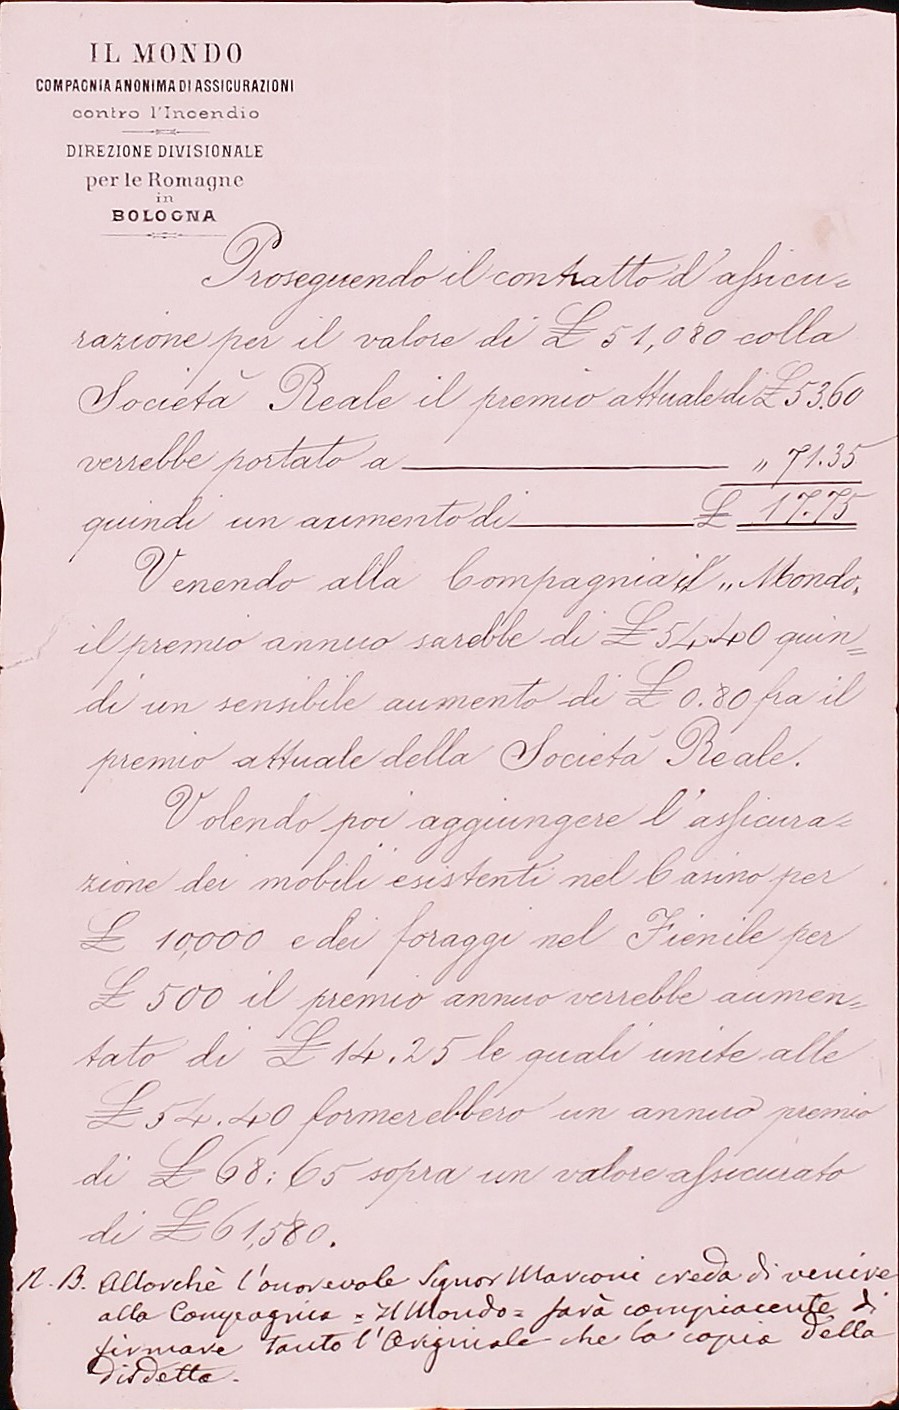 IL MONDO
COMPAGNIA ANONIMA DI ASSICURAZIONI
contro l'Incendio
DIREZIONE DIVISIONALE
per le Romagne
in
BOLOGNA
Proseguendo il contratto d'assicu=
razione per il valore di £ 51,080 colla
Società Reale il premio attuale di £ 53.60
verrebbe portato a „ 71.35
quindi un aumento di £ 17.75
Venendo alla Compagnia il „ Mondo„
il premio annuo sarebbe di £ 54.40 quin=
di un sensibile aumento di £ 0.80 fra il
premio attuale della Società Reale.
Volendo poi aggiungere l'assicura=
zione dei mobili esistenti nel Casino per
£ 10,000 e dei foraggi nel Fienile per
£ 500 il premio annuo verrebbe aumen=
tato di £ 14.25 le quali unite alle
£ 54.40 formerebbero un annuo premio
di £ 68:65 sopra un valore assicurato
di £ 61,580.
N. B. Allorchè l'onorevole Signor Marconi creda di venire
alla Compagnia = Il Mondo = sarà compiacente di
firmare tanto l'Originale che la copia della
disdetta.